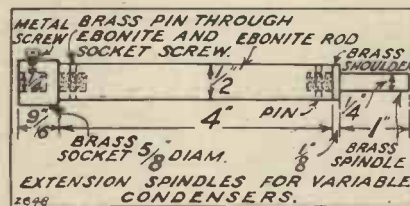 METAL SCREW
BRASS PIN THROUGH EBONITE AND SOCKET SCREW.
EBONITE ROD
BRASS SHOULDER
1/4"
1/2"
9/16"
4"
PIN
1/8"
1/4"
1"
BRASS SOCKET 5/8" DIAM.
BRASS SPINDLE
EXTENSION SPINDLES FOR VARIABLE
CONDENSERS.